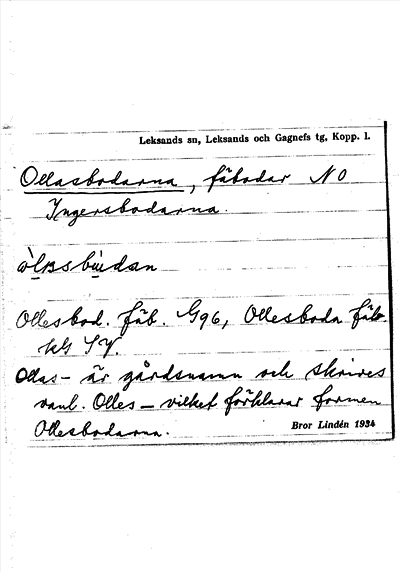 Leksands sn, Leksands och Gagnefs tg, Kopp. l.
Ollasbodarna, fäbodar NO
Ingersbodarna.
Ollesbod. fäb. G96, Ollesboda fäb.
SV.
Ollas- är gårdsnamn och skrives
vanl. Olles - vilket förklarar formen
Ollesbodarna.
Bror Lindén 1934